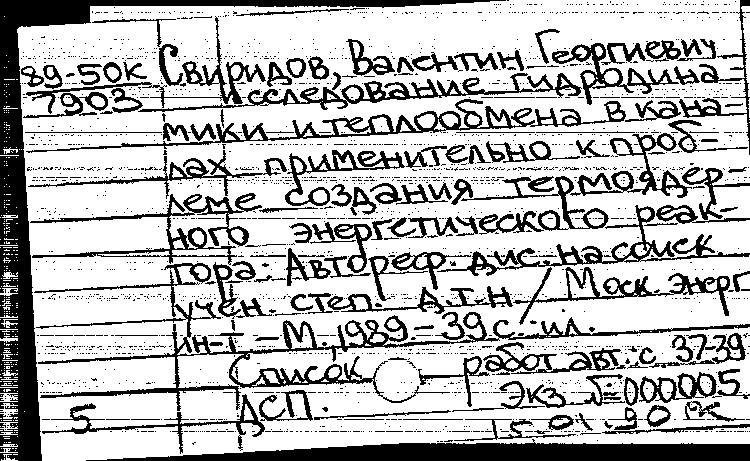 89-50К
7903
Свиридов, Валентин Георгиевич
Исследование гидродина-
мики и теплообмена в кана-
лах применительно к проб-
леме создания термоядер-
ного энергетического реак-
тора: Автореф. дис. на соиск.
учен. степ. д.т.н. / Моск. энерг
ин-т – М., 1989. – 39 с.: ил.
Список работ авт.: с 37-39
ДСП. Экз №000005
5
15.01.90